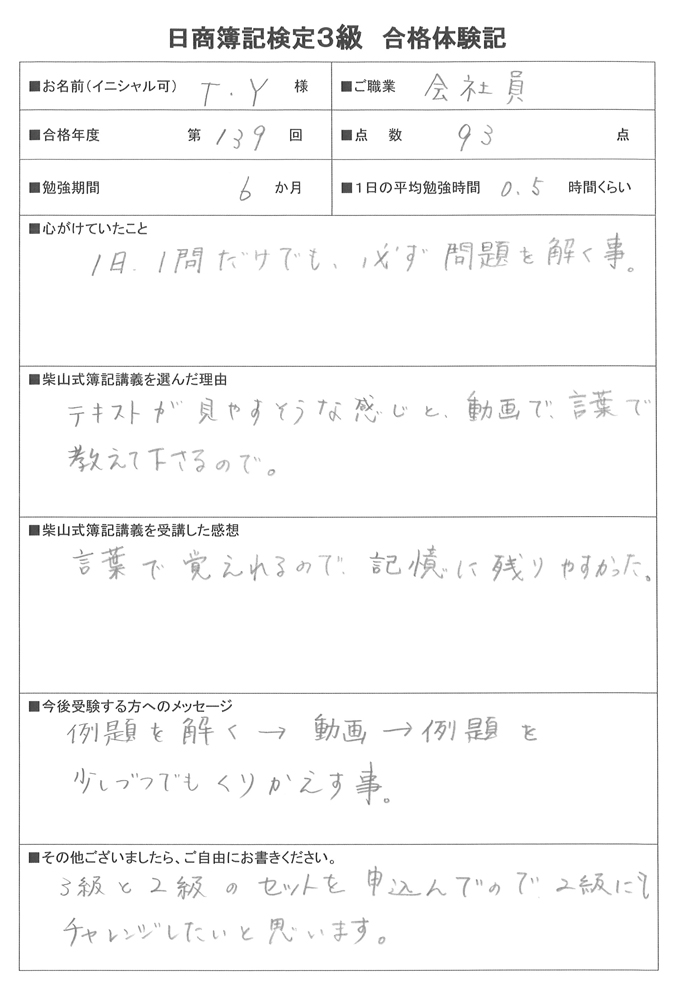 日商簿記検定3級 合格体験記
■お名前(イニシャル可) T.Y 様 ■ご職業 会社員
■合格年度 第 139 回 ■点 数 93 点
■勉強期間 6 か月 ■1日の平均勉強時間 0.5 時間くらい
■心がけていたこと
1日、1問だけでも、必ず問題を解く事。
■柴山式簿記講義を選んだ理由
テキストが見やすそうな感じと、動画で、言葉で
教えて下さるので。
■柴山式簿記講義を受講した感想
言葉で覚えれるので、記憶に残りやすかった。
■今後受験する方へのメッセージ
例題を解く→動画→例題を
少しづつでもくりかえす事。
■その他ございましたら、ご自由にお書きください。
3級と2級のセットを申込んでので、2級にも
チャレンジしたいと思います。